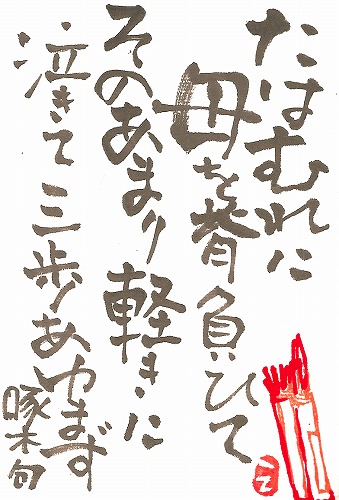 たはむれに
母を背負ひて
そのあまり軽きに
泣きて三歩あゆまず
啄木句